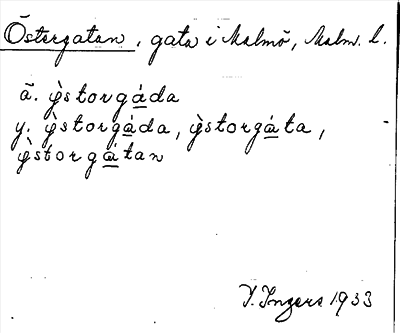 Östergatan, gata i Malmö, Malm. l.
ä. ỳ̊storgáda
y. ỳ̊storgáda, ỳ̊storgáta,
ỳ̊storgátan
I. Ingers 1933